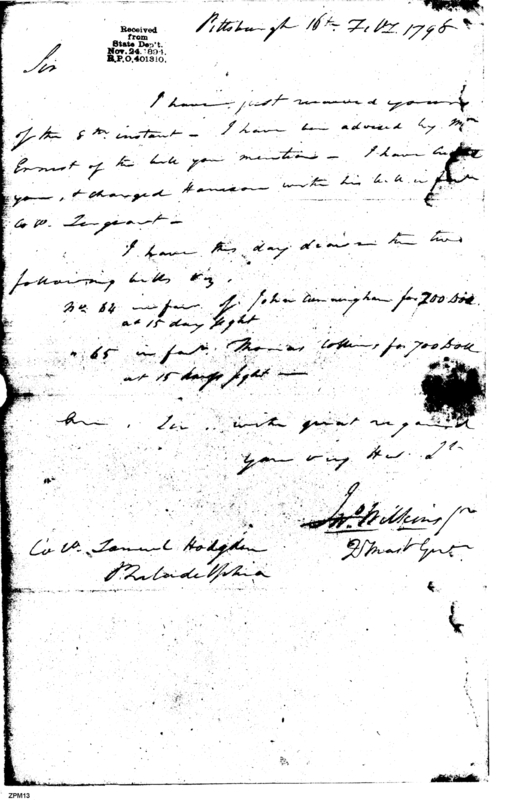 Pittsburgh 16th Feby 1798
Received
from
State Dep't.
Nov. 24. 1894.
R.P.O. 401310.
Sir
I have just received yours
of the 8th instant – I have been advised by Mr
Ernest of the bill you mention – I have
you, & charged Harrison with his bill in favr
Co Wm.
I have this day drawn the two
following bills viz.
No. 64 in favr of John Cunningham for 700 Doll
at 15 days sight
" 65 in favr Thomas Collins for 700 Doll
at 15 days sight –
Sir, with great regard
your very Hue. St
Jno. Wilkins Jr
Qr Mastr Genl
Samuel Hodgdon
Philadelphia
ZPM13